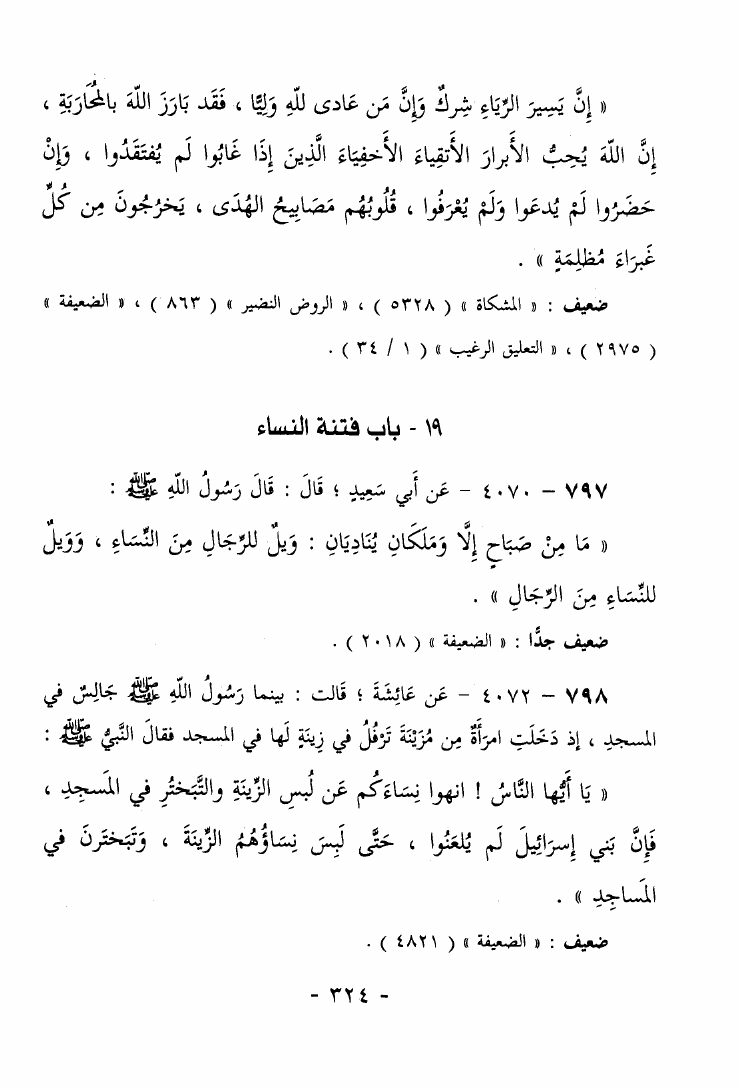 « إِنَّ يَسِيرَ الرِّيَاءِ شِركٌ وَإِنَّ مَن عَادى للّهِ وَلِيًّا ، فَقَد بَارَزَ اللّهَ بالمُحَارَبَةِ ،
إِنَّ اللّهَ يُحِبُّ الأَبرارَ الأَتقِياءَ الأَخفِيَاءَ الَّذِينَ إِذَا غَابُوا لَم يُفتَقَدُوا ، وَإِنْ
حَضَرُوا لَمْ يُدعَوا وَلَمْ يُعْرَفُوا ، قُلُوبُهُم مَصَابِيحُ الهُدَى ، يَخرُجُونَ مِن كُلِّ
غَبرَاءَ مُظلِمَةٍ » .
ضعيف : « المشكاة » ( ٥٣٢٨ ) ، « الروض النضير » ( ٨٦٣ ) ، « الضعيفة »
( ٢٩٧٥ ) ، « التعليق الرغيب » ( ١ / ٣٤ ) .
١٩ - باب فتنة النساء
٧٩٧ – ٤٠٧٠ – عَن أَبي سَعِيدٍ ؛ قَالَ : قَالَ رَسُولُ اللّهِ ﷺ :
« مَا مِنْ صَبَاحٍ إِلَّا وَمَلَكَانِ يُنَادِيَانِ : وَيلٌ للرِّجَالِ مِنَ النِّسَاءِ ، وَوَيلٌ
للنِّسَاءِ مِنَ الرِّجَالِ » .
ضعيف جدًّا : « الضعيفة » ( ٢٠١٨ ) .
٧٩٨ – ٤٠٧٢ – عَن عَائِشَةَ ؛ قَالت : بينما رَسُولُ اللّهِ ﷺ جَالِسٌ في
المسجدِ ، إذ دَخَلَتِ امرَأَةٌ مِن مُزَيْنَةَ تَرْفُلُ في زِينَةٍ لَها في المسجد فقالَ النَّبيُّ ﷺ :
« يَا أَيُّها النَّاسُ ! انهوا نِسَاءَكُم عَن لُبسِ الزِّينَةِ والتَّبَختُرِ في المَسجِدِ ،
فَإِنَّ بَني إِسرَائِيلَ لَم يُلعَنُوا ، حَتَّى لَبِسَ نِسَاؤُهُمُ الزِّينَةَ ، وَتَبَختَرنَ في
المَساجِدِ » .
ضعيف : « الضعيفة » ( ٤٨٢١ ) .
- ٣٢٤ -